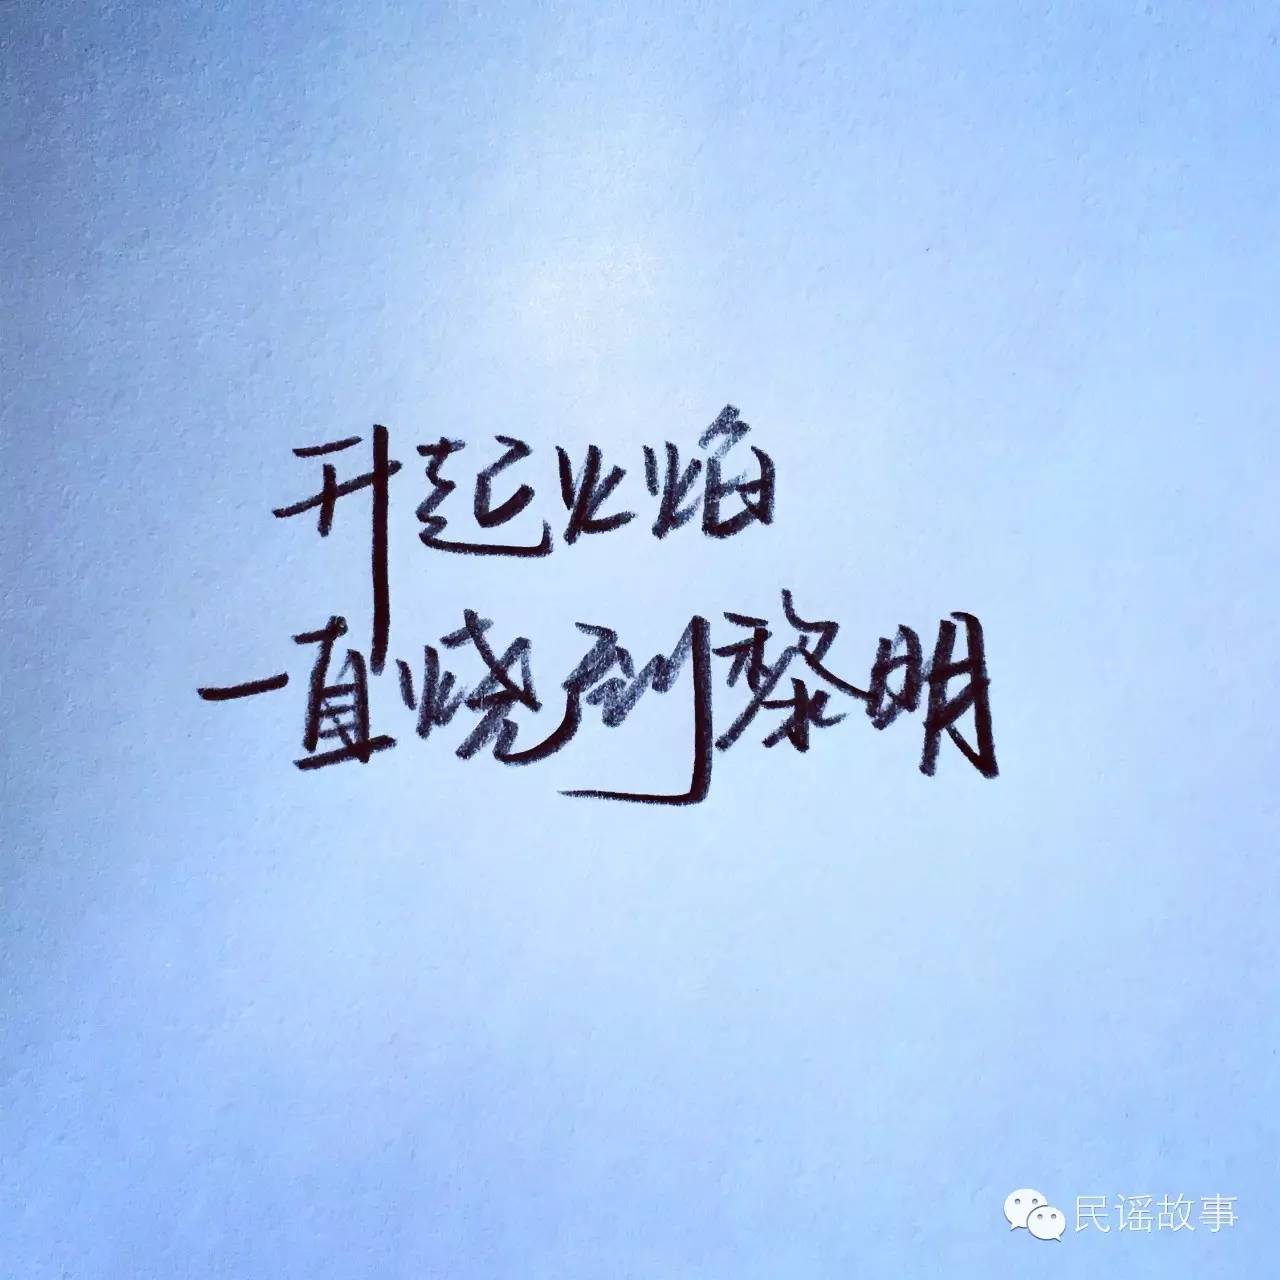 升起火焰
一直烧到黎明
民谣故事